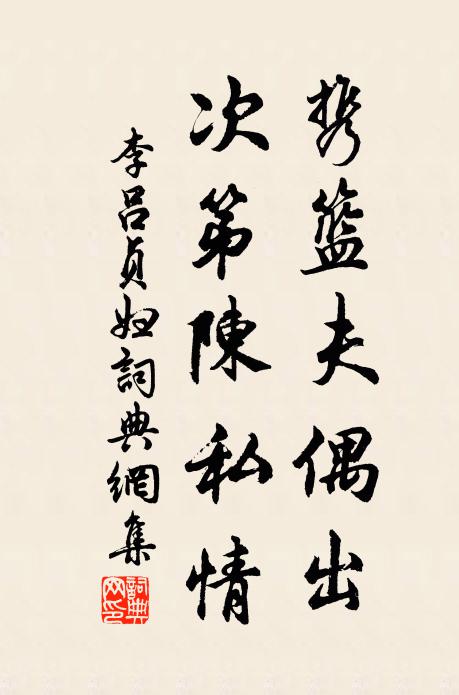 携籃夫偶出
次第陳私情
李呂貞妞詞典網集
詞典網印